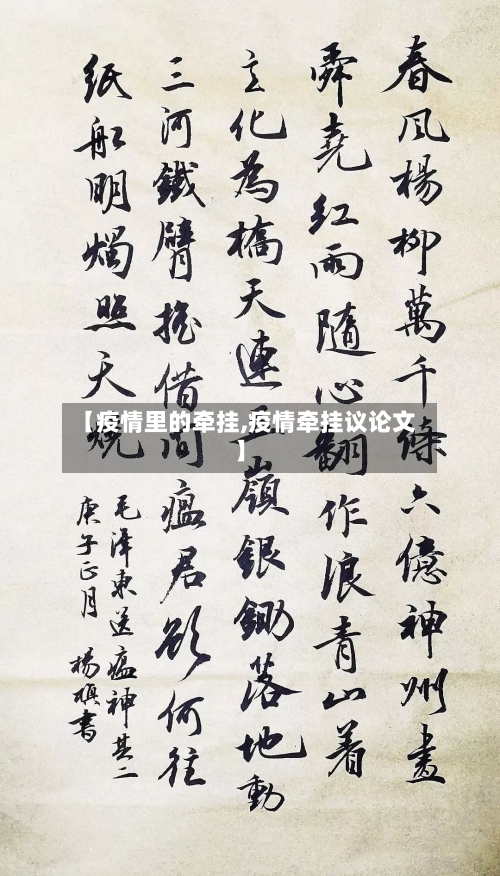 春风楊柳萬千條六億神州盡
舜堯紅雨隨心翻作浪青山着
意化為橋天連五嶺銀鋤落地動
三河鐵臂搖借問瘟君欲何往
紙船明燭照天燒
毛澤東送瘟神其二
庚子正月 楊書
【疫情里的牵挂,疫情牵挂议论文
】